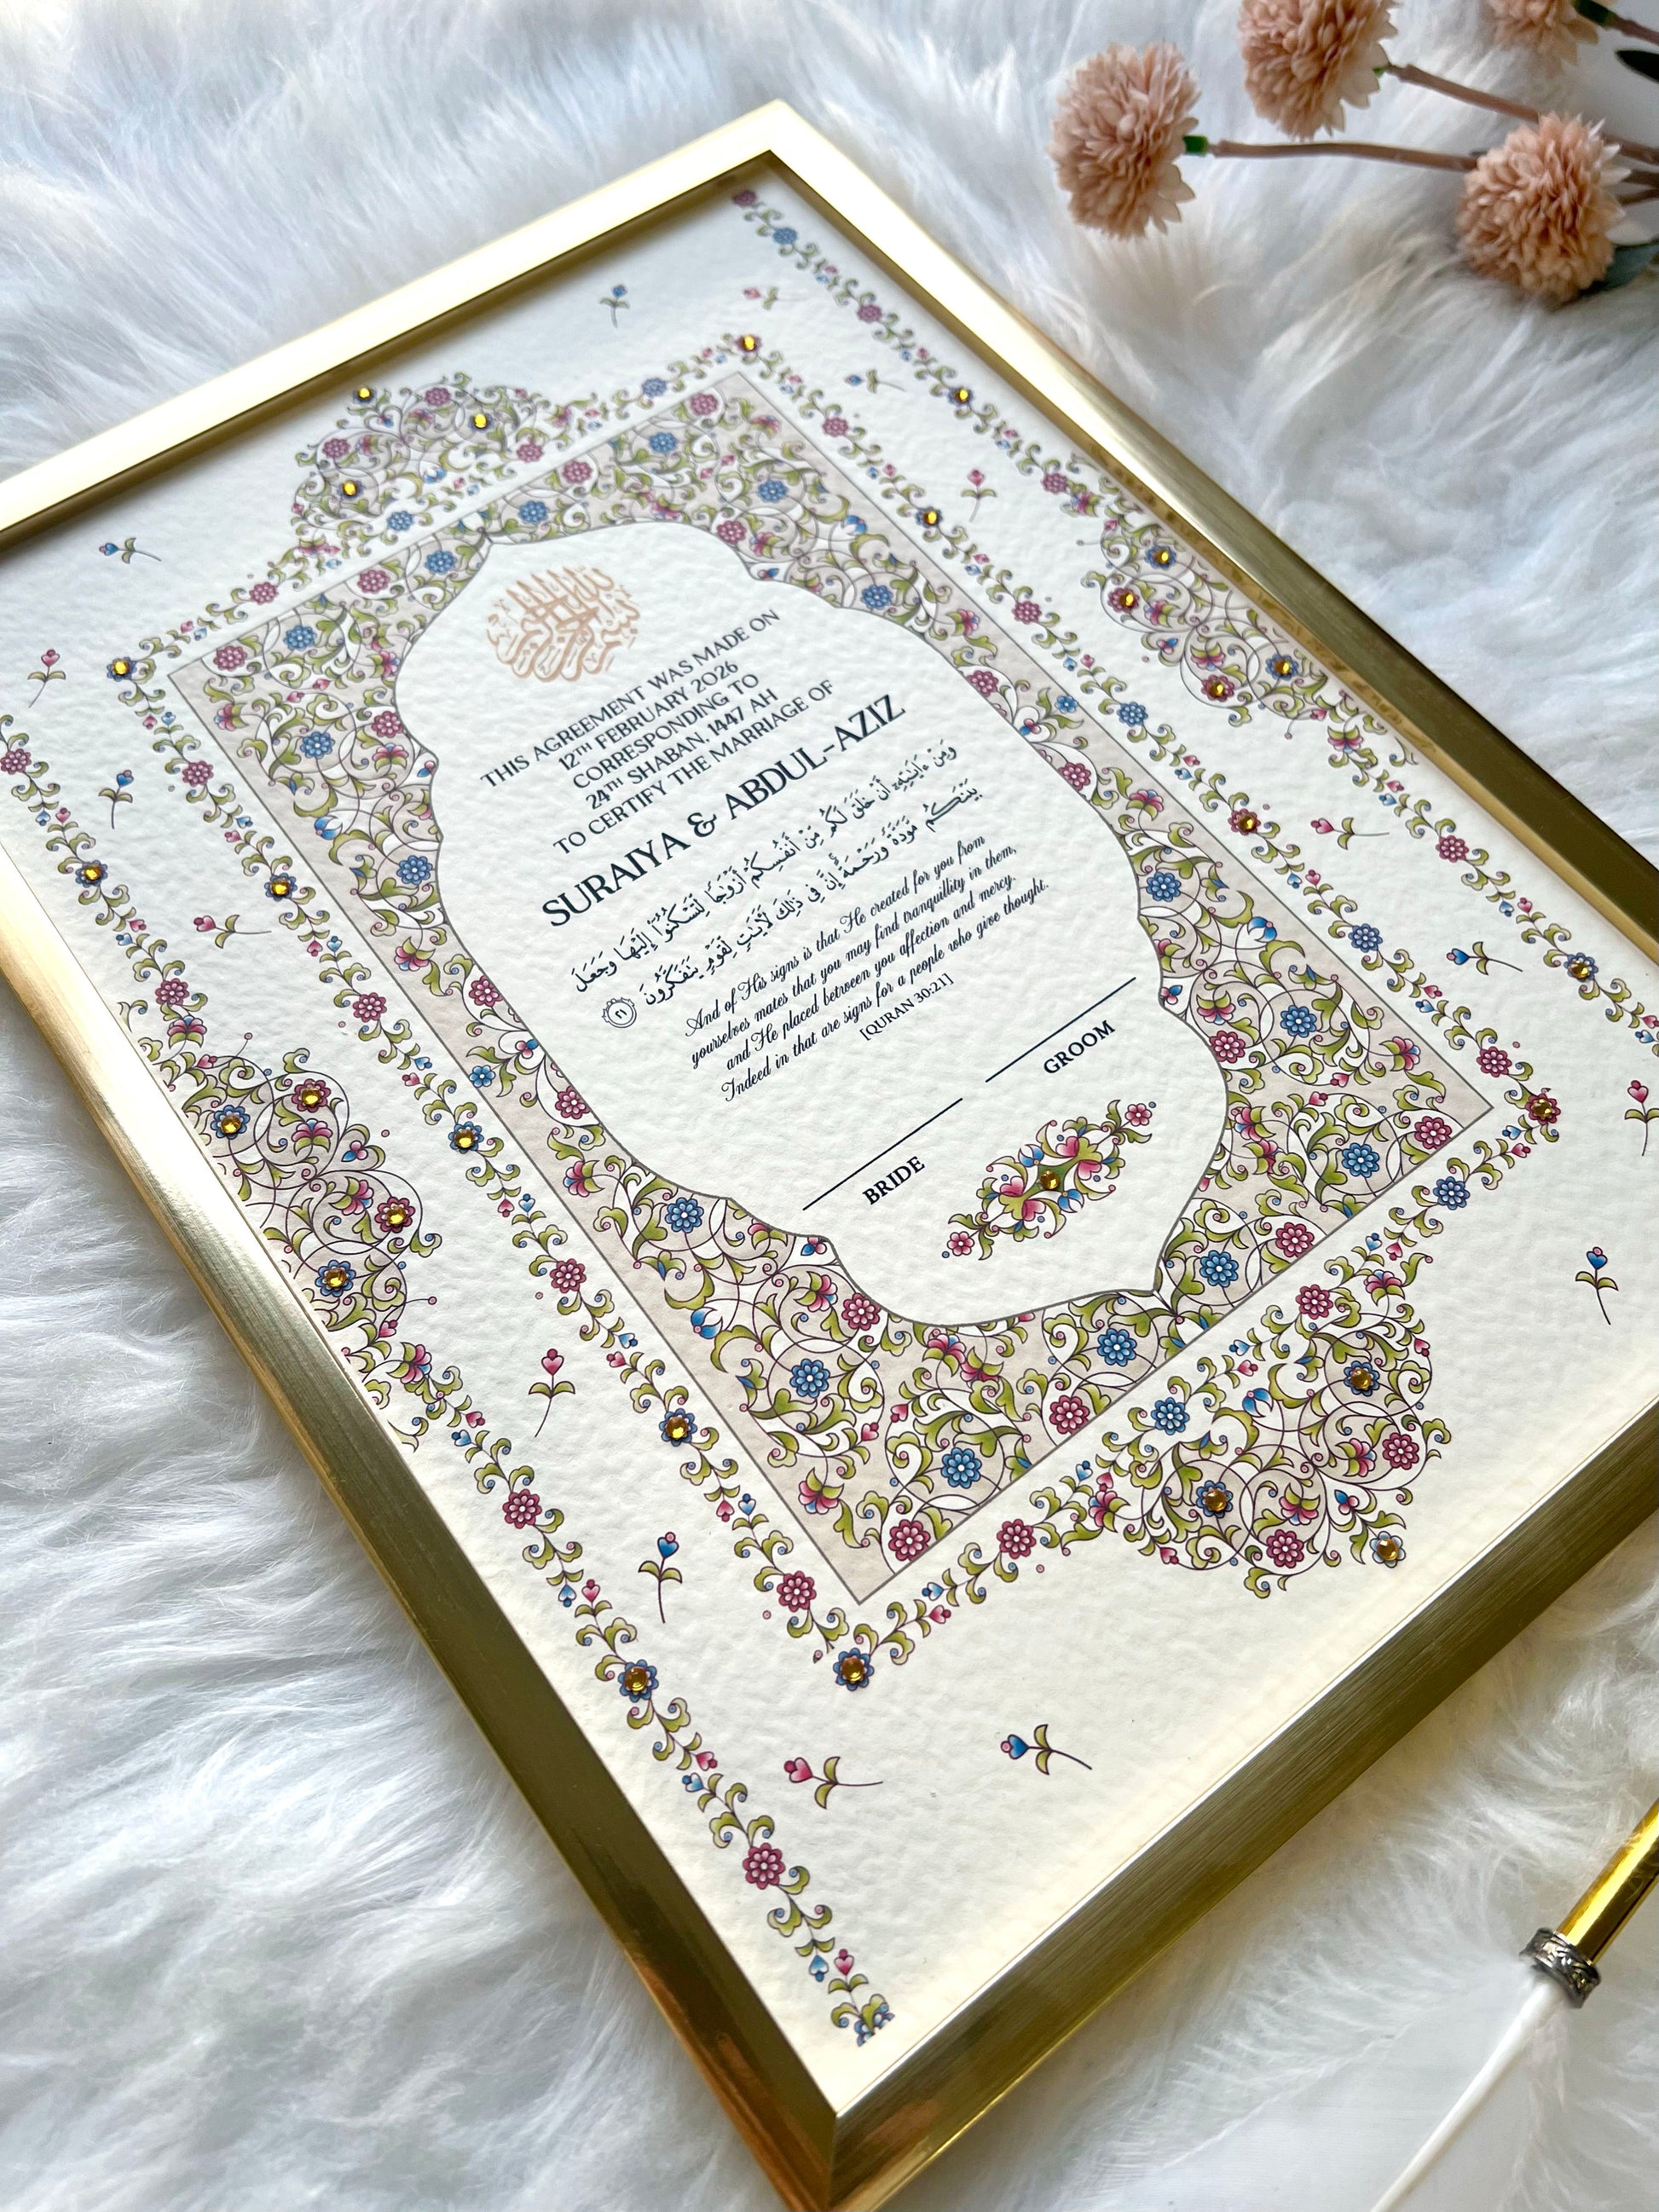 بسم الله الرحمن الرحيم
THIS AGREEMENT WAS MADE ON
12TH FEBRUARY 2026
CORRESPONDING TO
24TH SHABAN, 1447 AH
TO CERTIFY THE MARRIAGE OF
SURAIYA & ABDUL-AZIZ
وَمِنْ ءَايَـٰتِهِۦٓ أَنْ خَلَقَ لَكُم مِّنْ أَنفُسِكُمْ أَزْوَٰجًا لِّتَسْكُنُوٓا۟ إِلَيْهَا وَجَعَلَ
بَيْنَكُم مَّوَدَّةً وَرَحْمَةً إِنَّ فِى ذَٰلِكَ لَـَٔايَـٰتٍ لِّقَوْمٍ يَتَفَكَّرُونَ ٢١
And of His signs is that He created for you from
yourselves mates that you may find tranquillity in them,
and He placed between you affection and mercy.
Indeed in that are signs for a people who give thought.
[QURAN 30:21]
BRIDE
GROOM